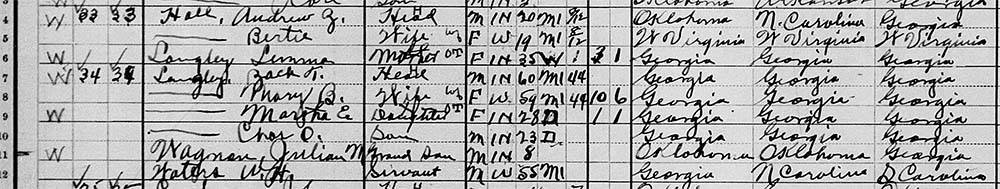 W 33 33 Hall, Andrew J. Head M IN 20 M1 9/12 Oklahoma N. Carolina Georgia
—— Bertie Wife F W 19 M1 W Virginia W Virginia W Virginia
6 W Langley Lemma Mother F IN 35 1 1 Georgia Georgia Georgia
7 W 34 34 Langley, Zack T. Head M IN 60 M1 44 Georgia Georgia Georgia
8 —— Mary B. Wife F W 59 M1 44 10 6 Georgia Georgia Georgia
9 W —— Martha E Daughter F IN 28 D 1 1 Georgia Georgia Georgia
10 —— Chas O. Son M IN 23 D Georgia Georgia Georgia
11 W Wagnon, Julian M Grand Son M IN 8 Oklahoma Oklahoma Georgia
12 Waters W. H. Servant M W 55 M1 Georgia N. Carolina S Carolina